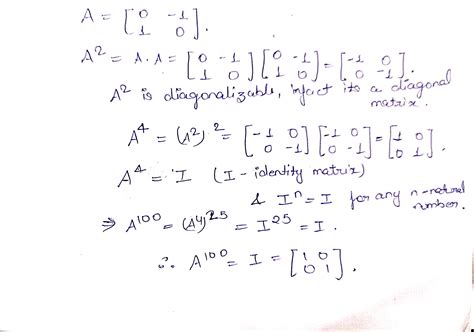 A = [0 -1; 1 0].
A² = A·A = [0 -1; 1 0] [0 -1; 1 0] = [-1 0; 0 -1].
A² is diagonalizable, infact its a diagonal matrix.
A⁴ = (A²)² = [-1 0; 0 -1] [-1 0; 0 -1] = [1 0; 0 1].
A⁴ = I (I - identity matrix)
& Iⁿ = I for any n-natural number.
⇒ A¹⁰⁰ = (A⁴)²⁵ = I²⁵ = I.
∴ A¹⁰⁰ = I = [1 0; 0 1].